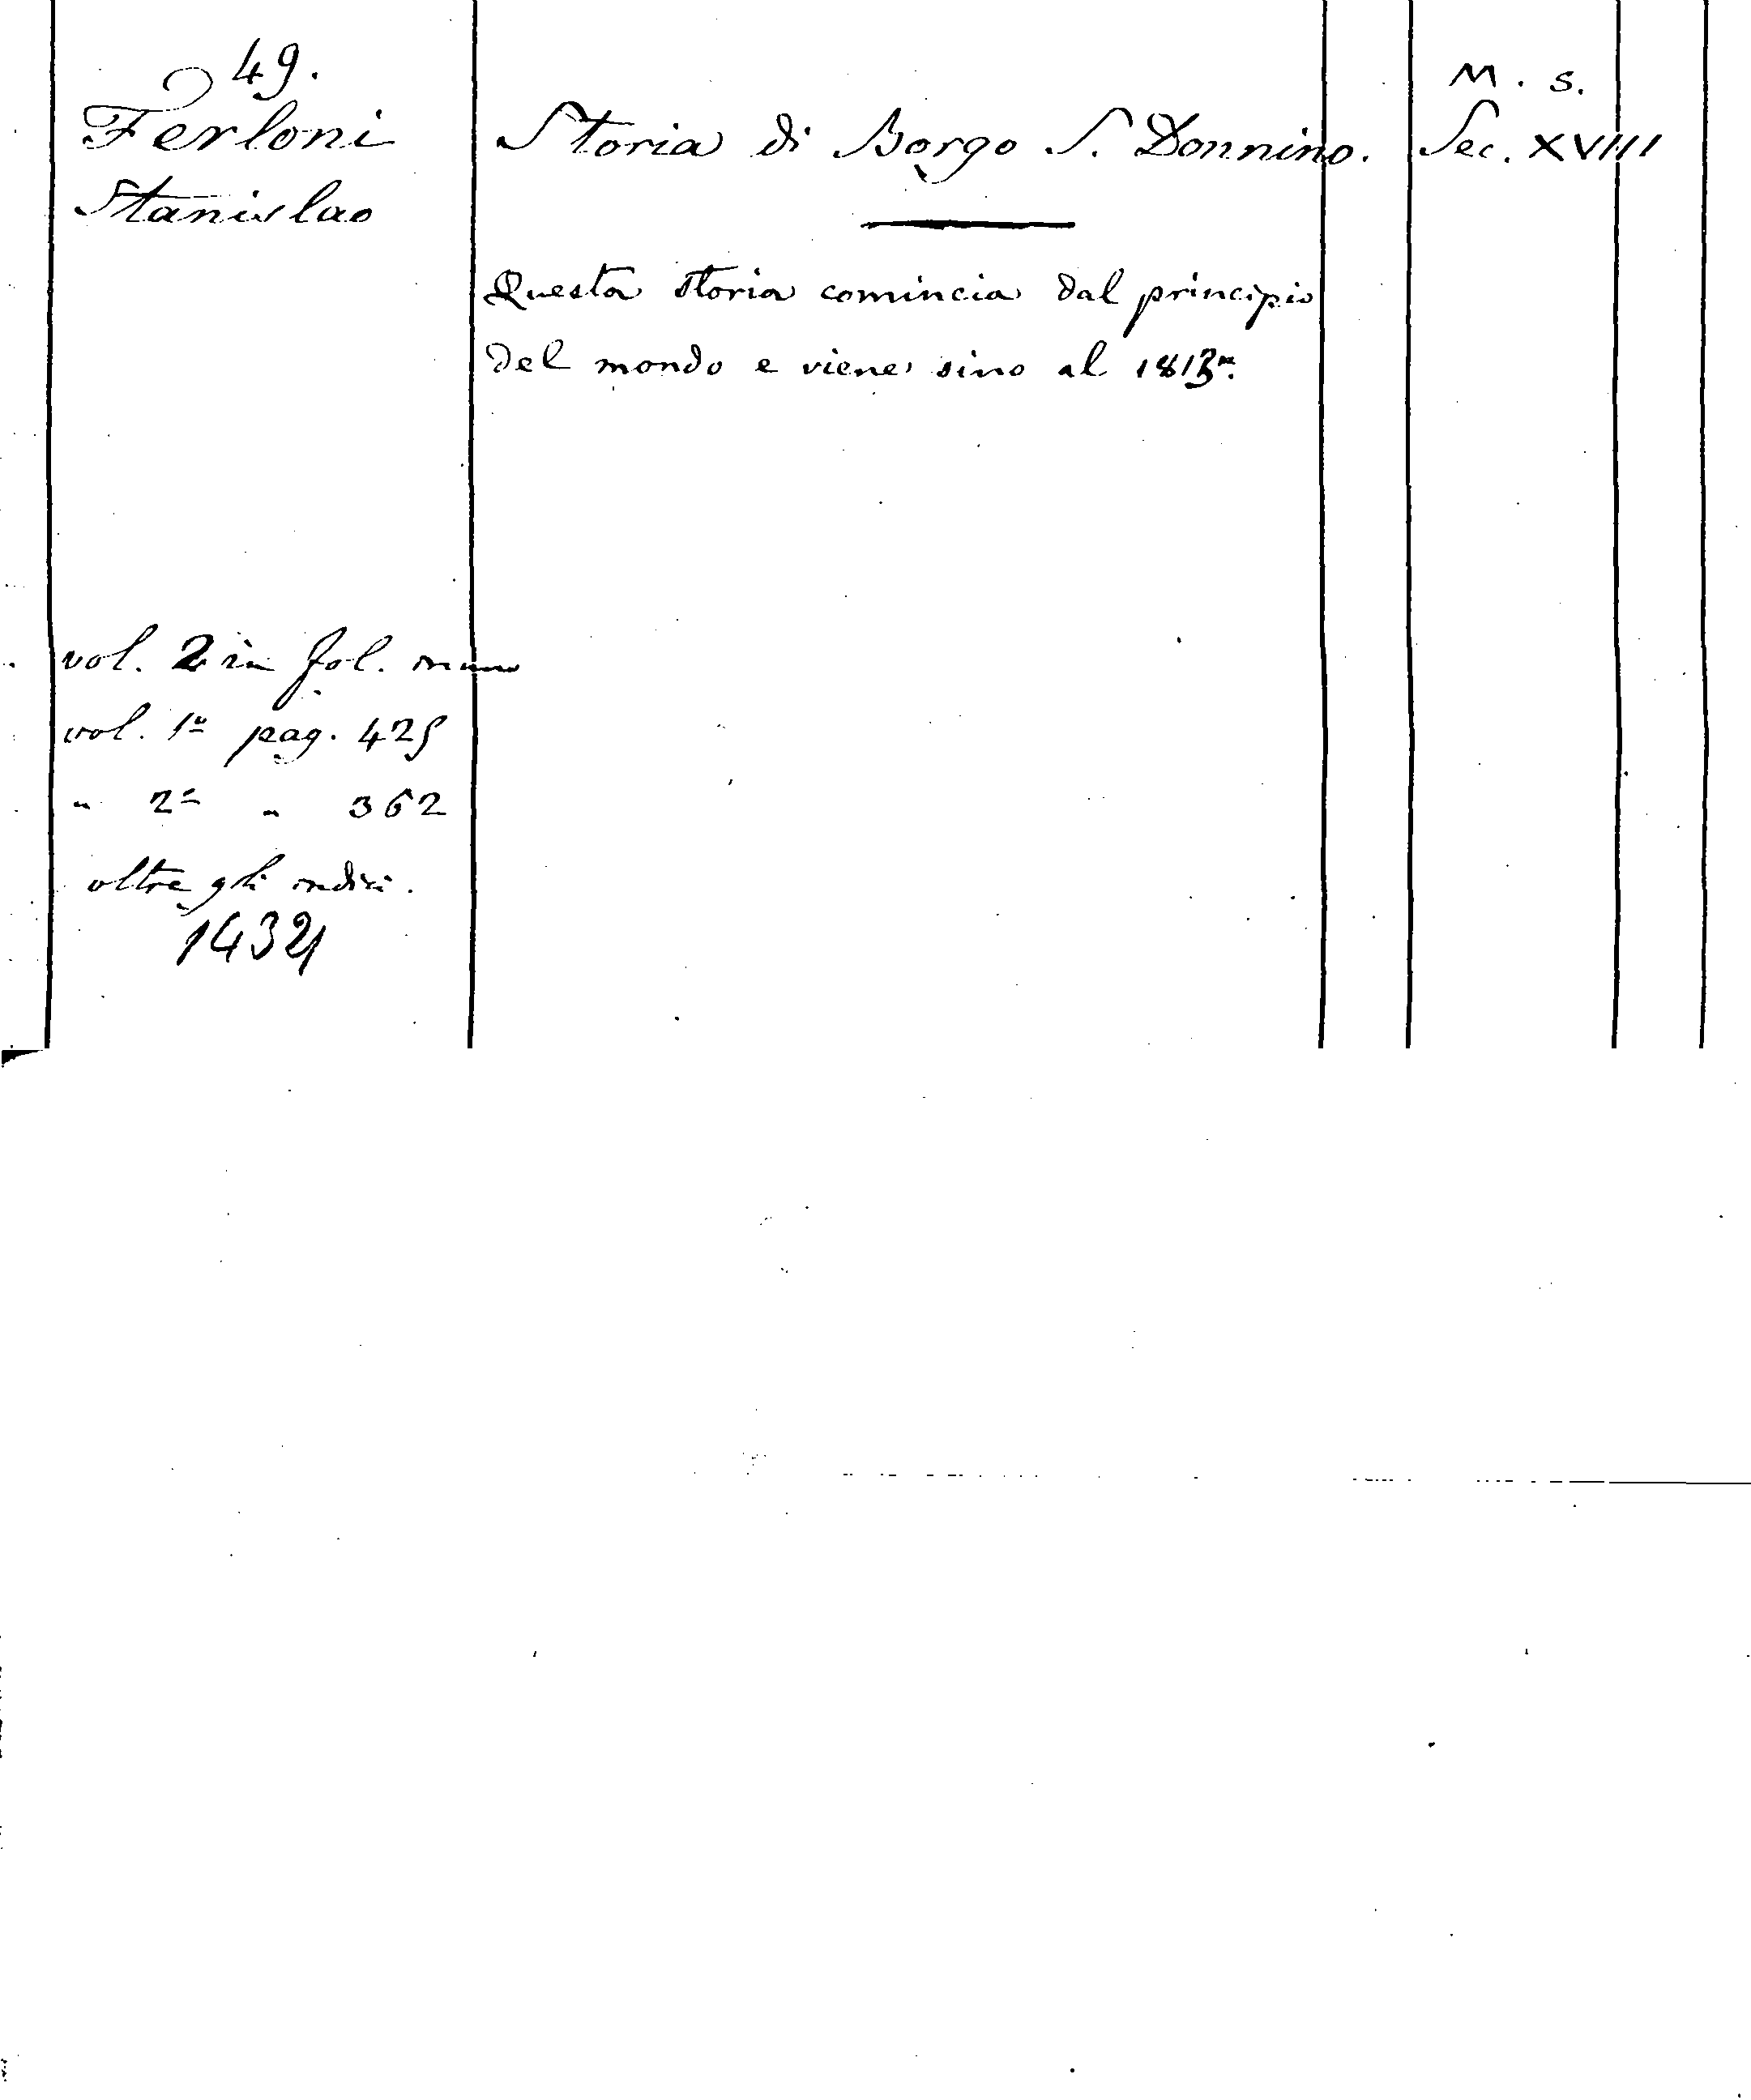 49.
Ferloni
Stanislao
Storia di Borgo S. Donnino.
M. s.
Sec. XVIII
Questa storia comincia dal principio
del mondo e viene sino al 1813
vol. 2 in fol.
vol. 1º pag. 425
" 2º " 362
oltre gli indici.